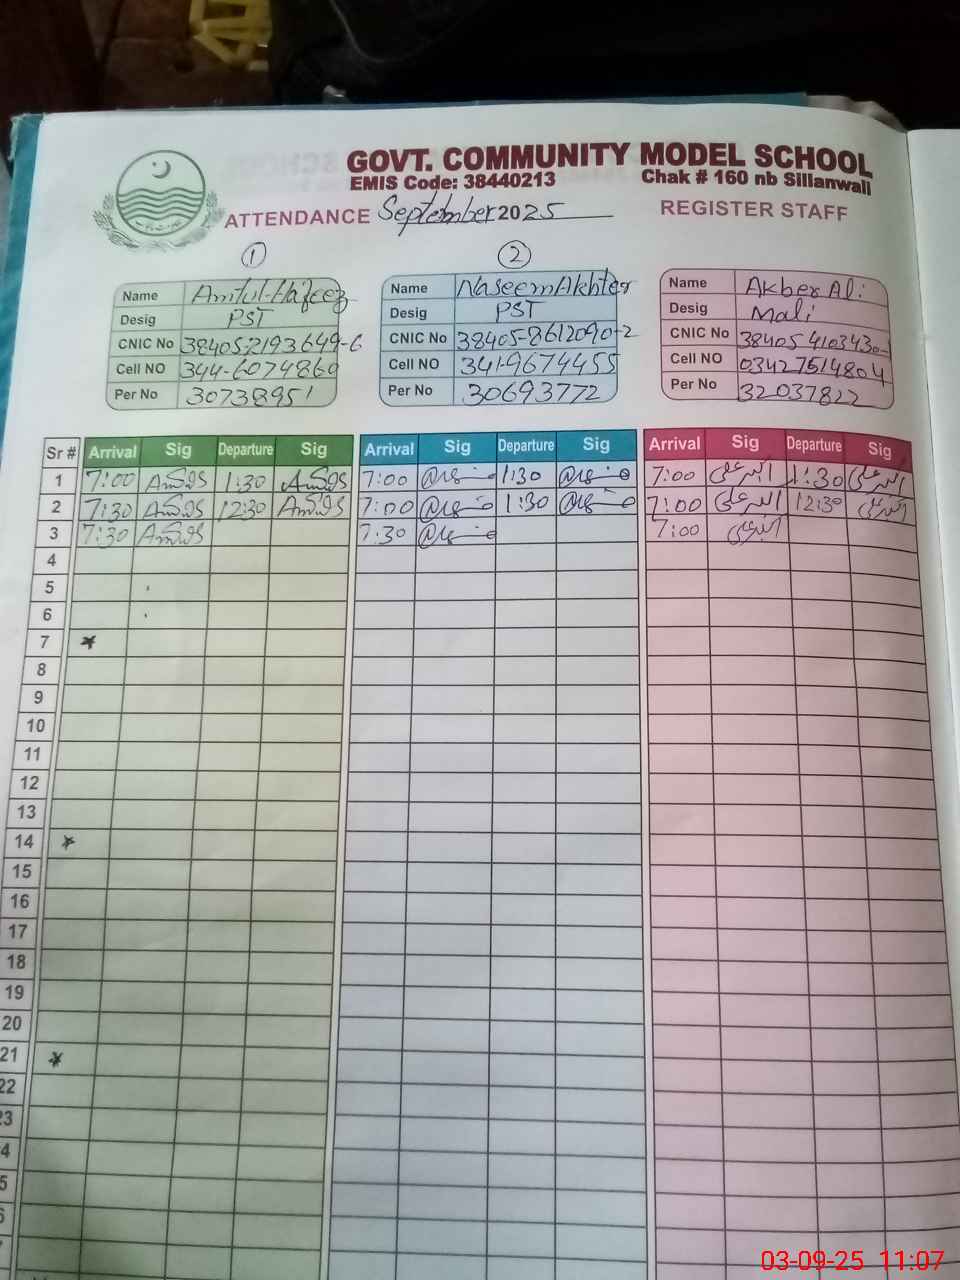 GOVT. COMMUNITY MODEL SCHOOL
EMIS Code: 38440213 Chak # 160 nb Sillanwali
ATTENDANCE September 2025 REGISTER STAFF
1 2
Name Amtul-Hafeez
Desig PST
CNIC No 38405-2193649-6
Cell NO 344-6074869
Per No 30738951
Name Naseem Akhter
Desig PST
CNIC No 38405-8612090-2
Cell NO 341-9674455
Per No 30693772
Name Akber Ali
Desig Mali
CNIC No 38405 4103430-
Cell NO 03427514804
Per No 32037822
Sr # Arrival Sig Departure Sig Arrival Sig Departure Sig Arrival Sig Departure Sig
1 7:00 1:30 7:00 1:30 7:00 اکبر علی 1:30 اکبر علی
2 7:30 12:30 7:00 1:30 7:00 اکبر علی 12:30 اکبر علی
3 7:30 7:30 7:00 اکبر علی
4
5
6
7 *
8
9
10
11
12
13
14 *
15
16
17
18
19
20
21 *
22
23
4
5
6
03-09-25 11:07